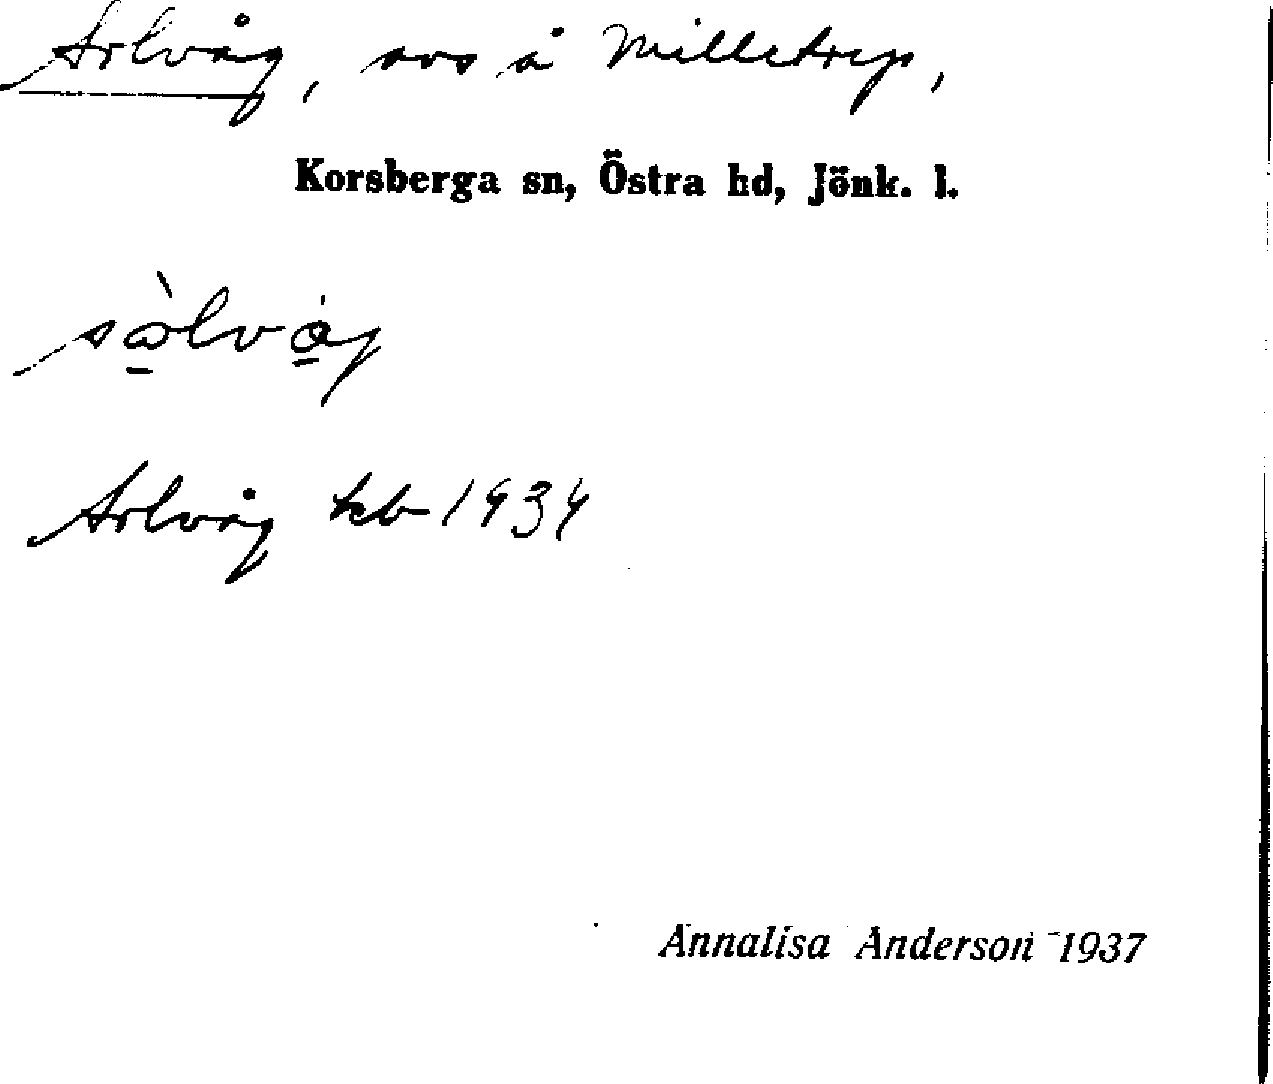 Solvåg, avs å Milletryp,
Korsberga sn, Östra hd, Jönk. l.
sòlvåg
Solvåg kb 1934
Annalisa Anderson 1937